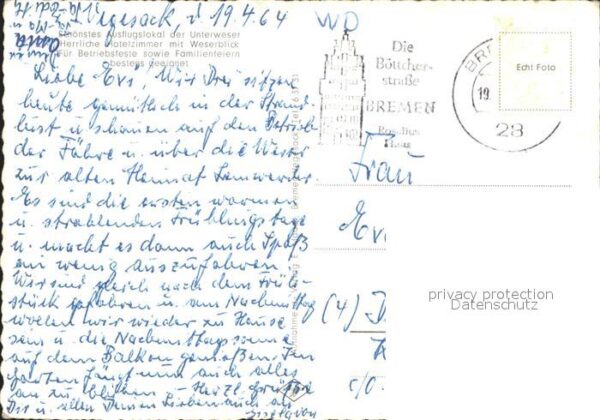 Vegesack, d. 19.4.64
Schönstes Ausflugslokal der Unterweser
Herrliche Hotelzimmer mit Weserblick
Für Betriebsfeste sowie Familienfeiern
bestens geeignet
Liebe Evi! Wir Drei sitzen
heute gemütlich in der Strand-
lust u. schauen auf den Betrieb
der Fähre u. über die Weser
zur alten Heimat Lemwerder.
Es sind die ersten warmen
u. strahlenden Frühlingstage
u. macht es dann auch Spaß
ein wenig auszufahren.
Wir sind gleich nach dem Früh-
stück gefahren u. am Nachmittag
wollen wir wieder zu Hause
sein u. die Nachmittagssonne
auf dem Balkon genießen.
auch alles
an zu blühen. Herzl. Grüße
Dir u. allen Deinen Lieben auch
Die
Böttcher-
straße
BREMEN
Haus
19.
28
Echt Foto
Frau
(4)
c/o.
privacy protection
Datenschutz